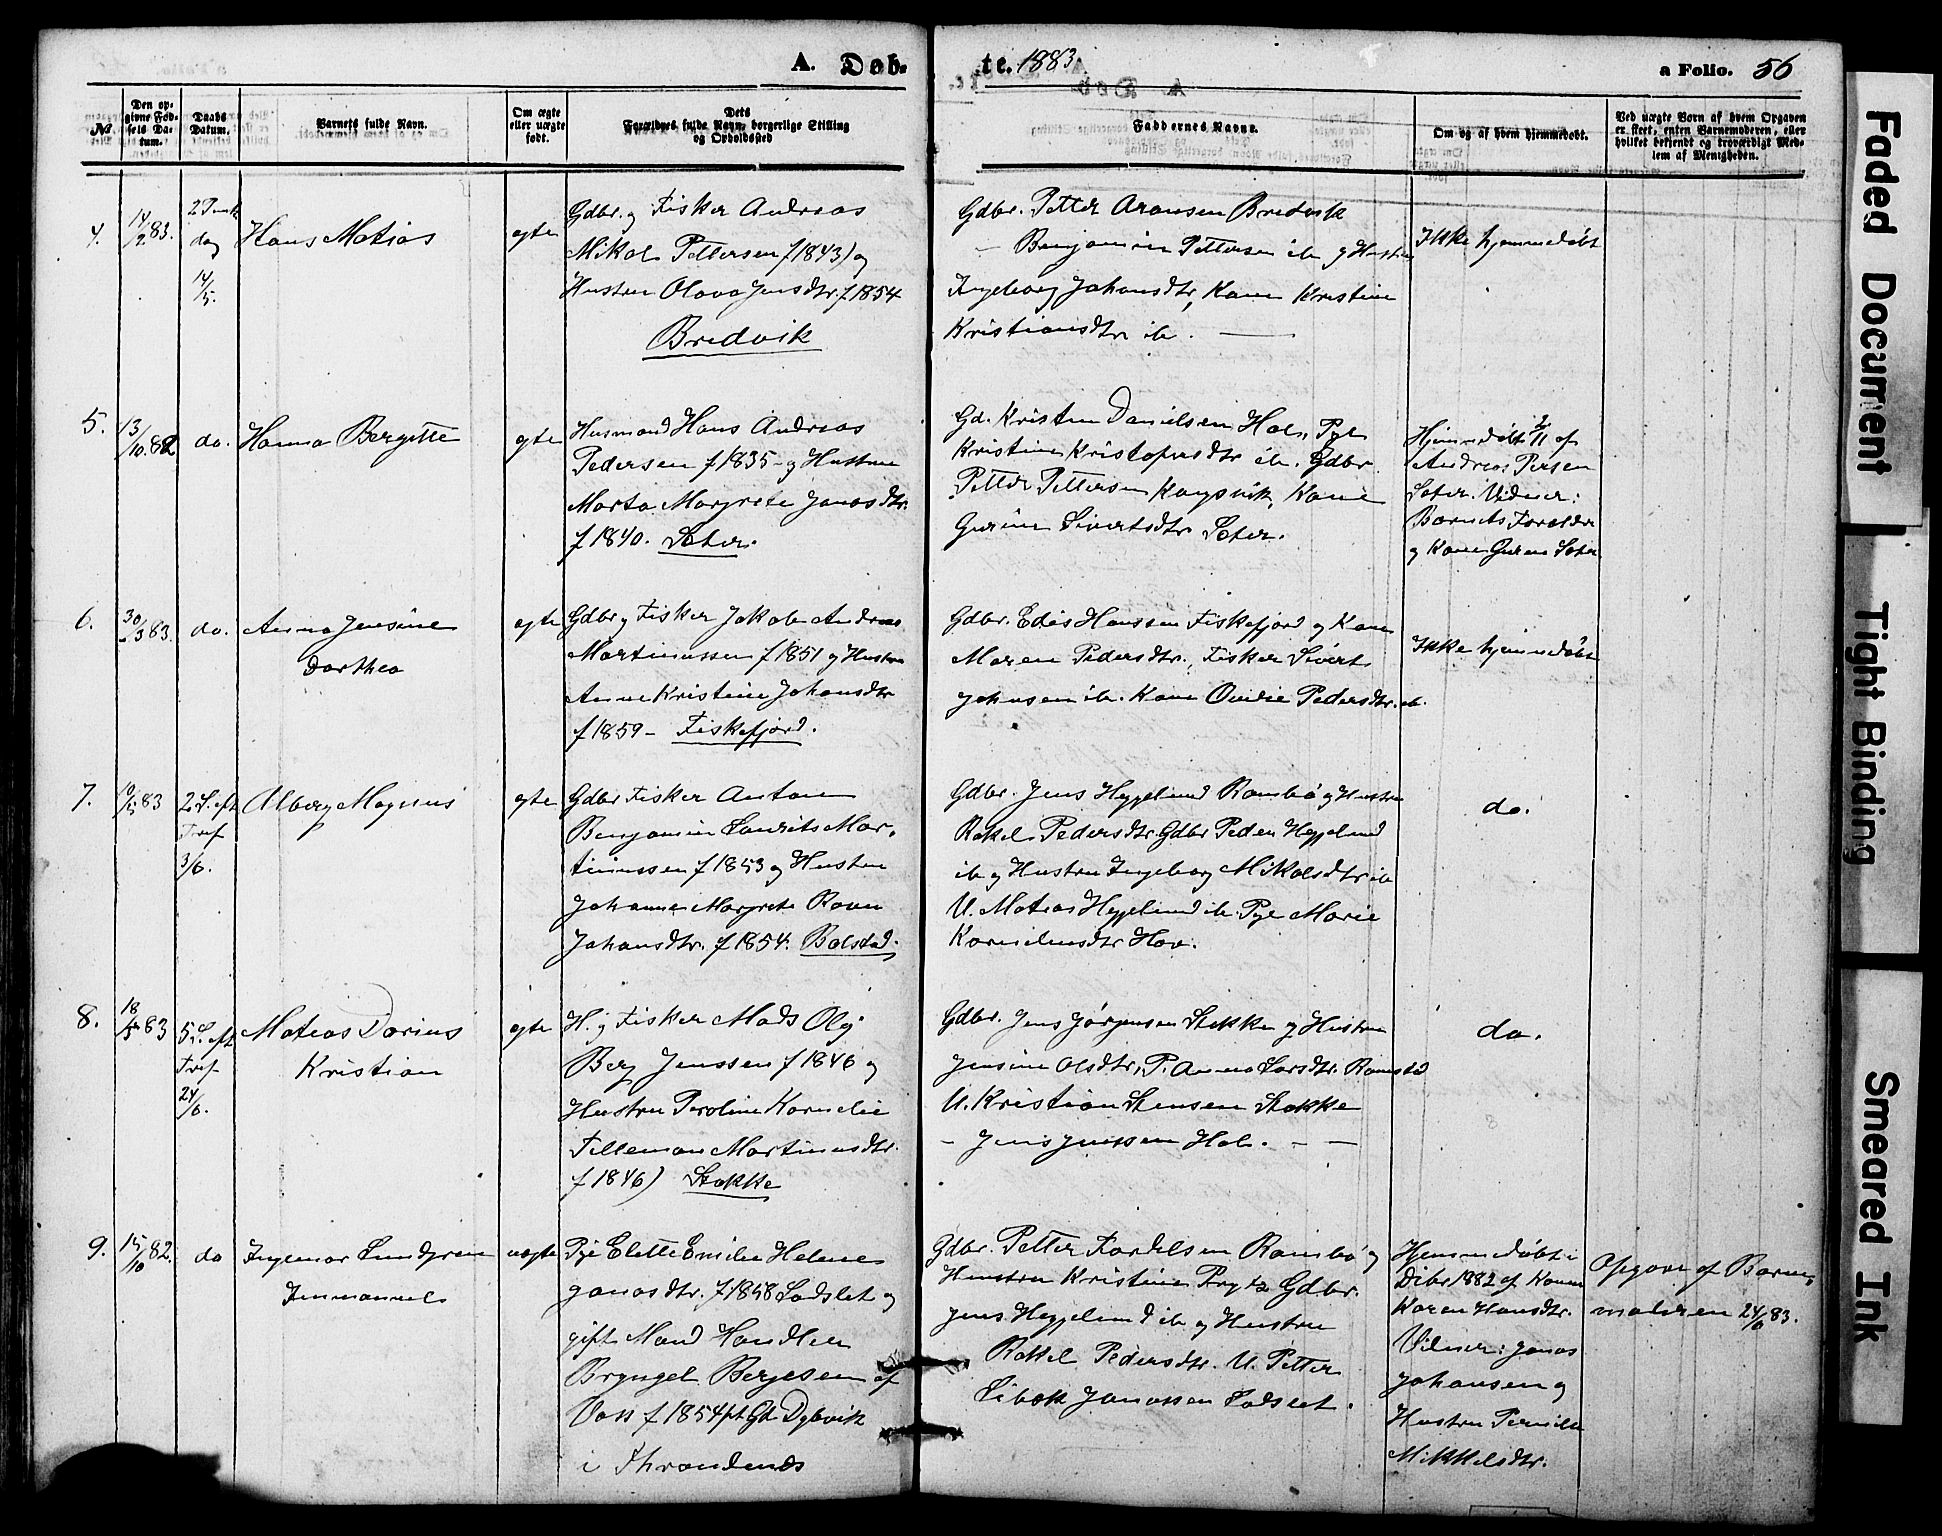 A. Døb-
te. 1883.
a Folio. 56
No.
Den op-
givne Fød-
sels Da-
tum.
Daabs
Datum.
Barnets fulde Navn.
Om ægte
eller uægte
født.
Dets
Forældres fulde Navn, borgerlige Stilling
og Opholdssted
Faddernes Navne.
Om og af hvem hjemmedøbt.
Ved uægte Børn af hvem Opgaven
er skeet, enten Barnemoderen, eller
hvilket bekjendt og troværdigt Med-
lem af Menigheden.
4.
14/2 83.
dag
14/5.
Hans Matias
egte
Gdbr. og Fisker Andreas
Mikal Pettersen f 1843) og
Hustru Olava Jensdtr. f 1854
Bredvik
Gdbr. Petter Aronsen Bredvik
— Benjamin Pettersen ib og Hustru
Ingeborg Johansdtr, Kone Kristine
Kristiansdtr ib. —
Ikke hjemmedøbt
5.
13/10. 82
do.
Hanna Bergitte
egte
Husmand Hans Andreas
Pedersen f 1835 - og Hustru
Marta Margrete Jonasdtr.
f 1840. Sæter.
Gd. Kristen Danielsen Hol, Pge
Kristine Kristofersdtr ib. Gdbr.
Petter Pettersen Kongsvik, Kone
Gurine Sivertsdtr Sæter.
Hjemmedøbt /11 af
Andreas Persen
Sæter. Vidner:
Barnets Forældre
og Kone Guren Sæter
6.
30/3 83.
do.
Anna Jensine
Darthea
egte
Gdbr og Fisker Jakob Andreas
Martinussen f 1851 og Hustru
Anne Kristine Johansdtr
f 1859 - Fiskefjord.
Gdbr. Edis Hanssen Fiskefjord og Kone
Maren Pedersdtr., Fisker Sivert
Johnsen ib. Kone Ovidie Pedersdtr. ib.
Ikke hjemmedøbt
7.
83
2 S. eft
Tref
3/6.
Alberg Magnus
egte
Gdbr Fisker Anton
Benjamin Laurits Mar-
tinussen f 1853 og Hustru
Johanna Margrete Ravn
Johansdtr. f 1854. Balstad.
Gdbr. Jens Heggelund Ramsbø og Hustru
Rakel Pedersdtr. Gdbr Peder Heggelund
ib og Hustru Ingeborg Mikalsdtr ib
U. Matias Heggelund ib. Pge Marie
Korneliusdtr Hov.
do.
8.
18/5 83
5 S. eft
Tref
24/6.
Matias Darius
Kristian
egte
H. og Fisker Mads Olai
Berg Jenssen f 1846 og
Hustru Peroline Kornelie
Tilleman Martinusdtr.
f 1846) Stokke
Gdbr. Jens Jørgensen Stokke og Hustru
Jensine Olsdtr, P. Anna Larsdtr. Ramstad
U. Kristian Stensen Stokke
— Jens Jenssen Hol. — —
do.
9.
15/10 82.
do
Ingemar Lundgren
Immanuel
uægte
Pge Elette Emilie Helene
Jonasdtr. f 1858 Lodslet og
gift Mand Handlen
Bryngel Bergesen af
Voss f 1854 pt Gd Dybvik
i Throndenes
Gdbr. Petter Fordelsen Ramsbø og
Hustru Kristine Prytz Gdbr.
Jens Heggelund ib og Hustru
Rakel Pedersdtr. U. Petter
Libæk Jonassen Lodslet.
Hjemmedøbt i
Dcbr 1882 af Konen
Karen Hansdtr.
Vidner: Jonas
Johansen og
Hustru Pernille
Mikkelsdtr.
Opgave af Barne-
moderen 24/6 83.
Faded Document
Tight Binding
Smeared Ink